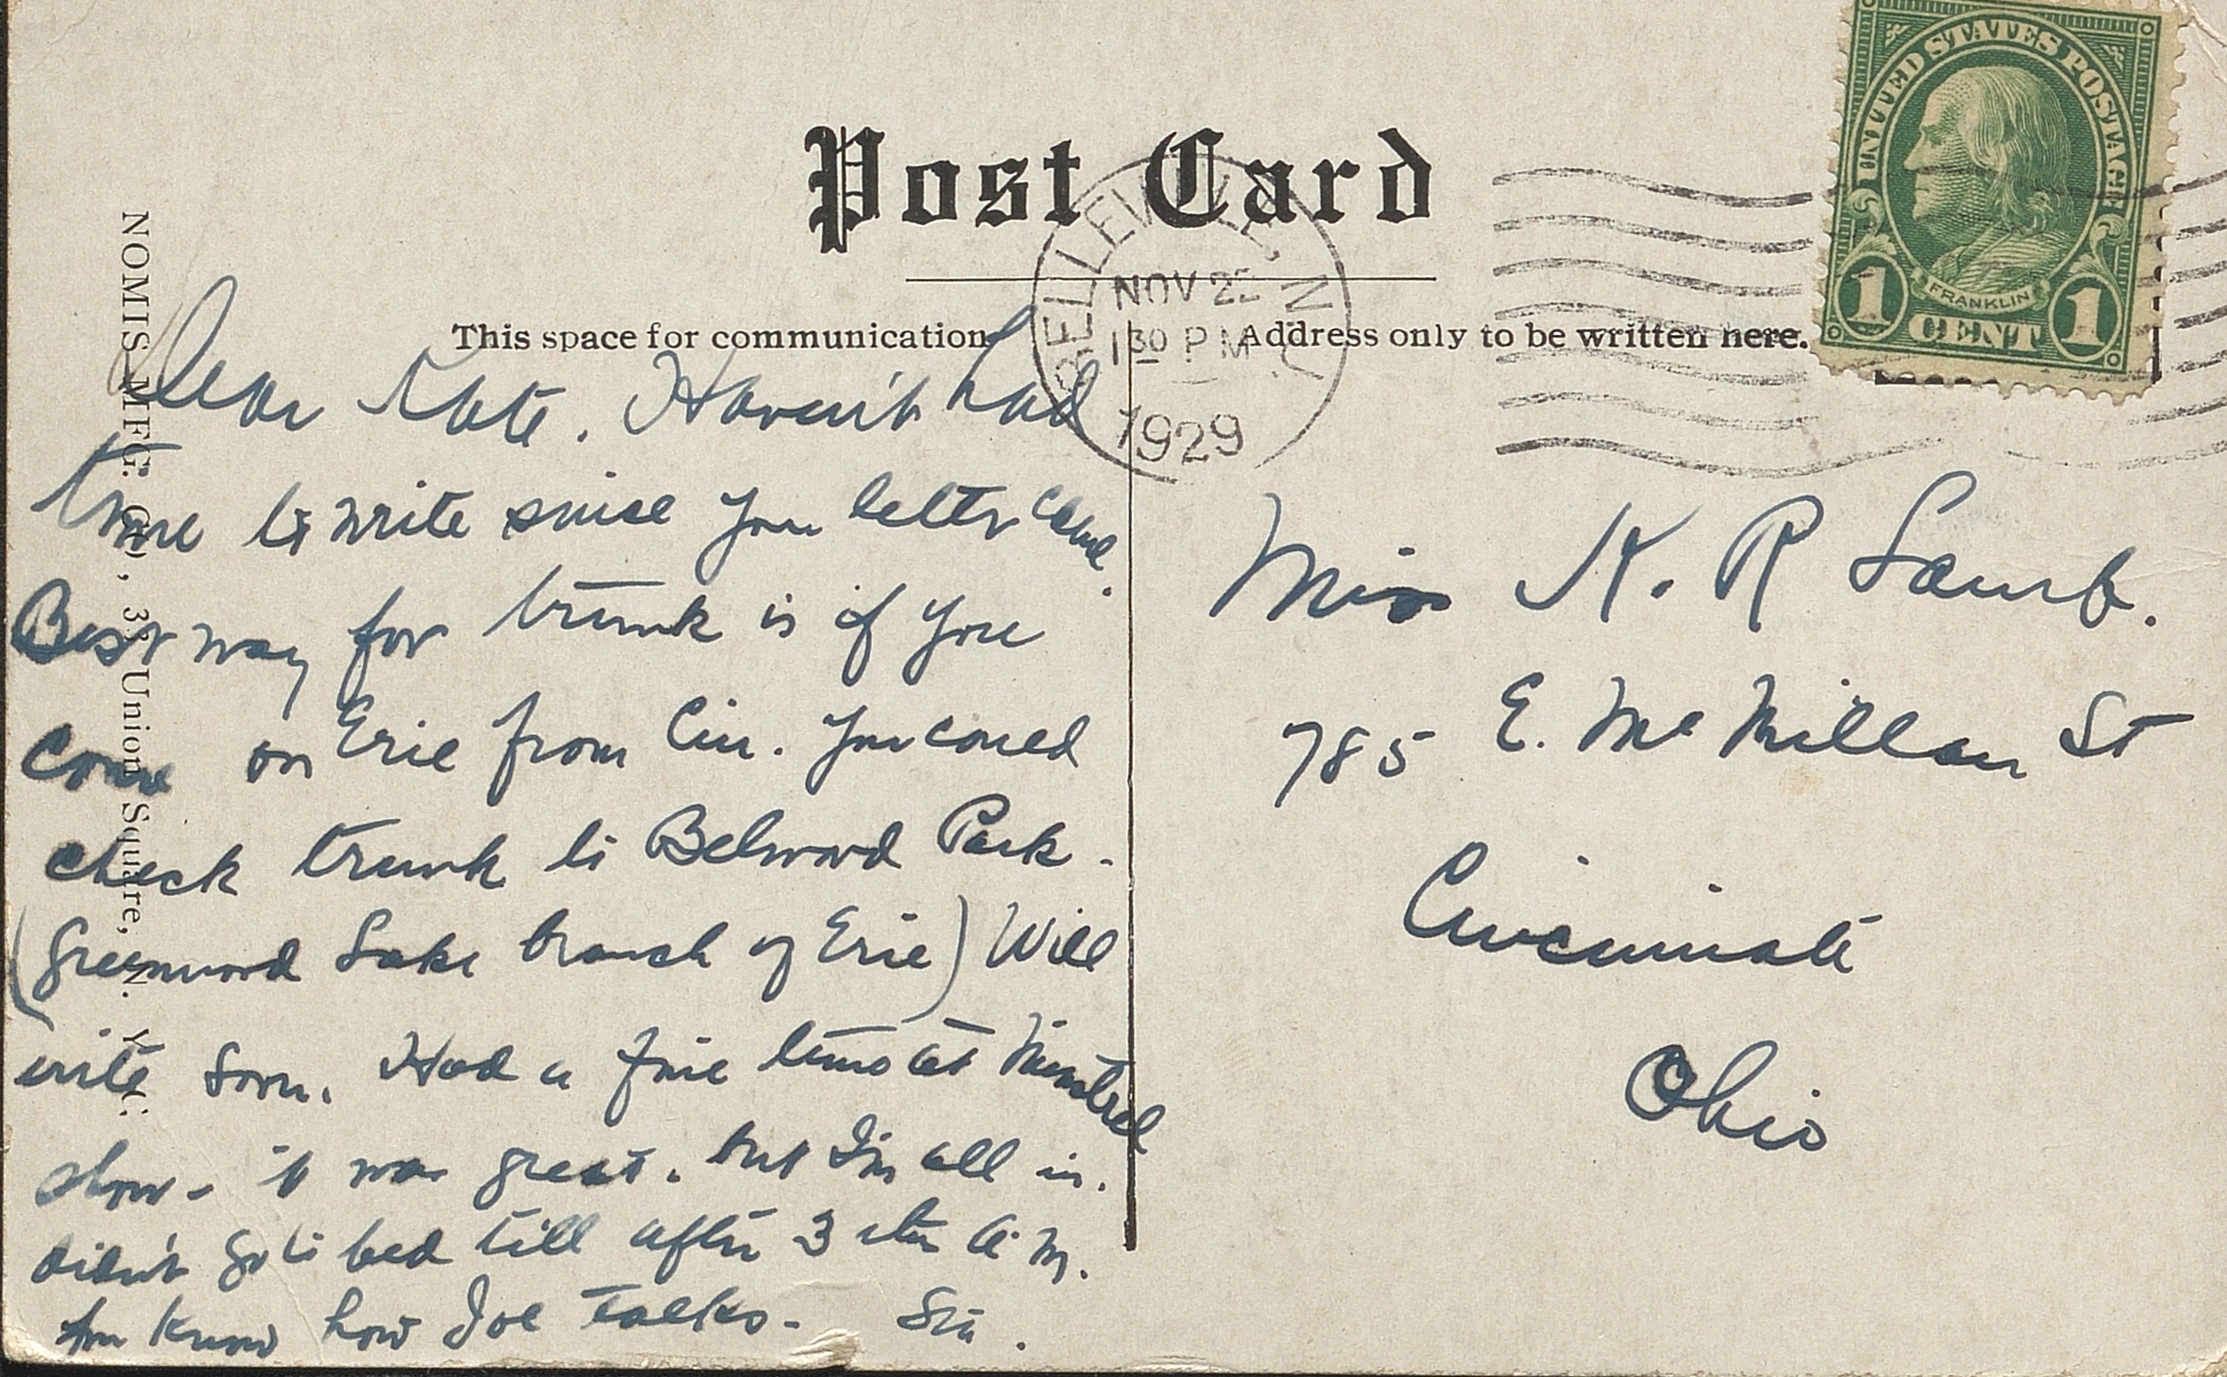 Post Card
This space for communication
Address only to be written here.
UNITED STATES POSTAGE
FRANKLIN
1 CENT 1
BELLEVILLE, N.J.
NOV 22
1 30 PM
1929
NOMIS MFG. CO., 35 Union Square, N. Y. C.
Dear Kate. Haven't had
time to write since your letter came.
Best way for trunk is if you
come on Erie from Cin. You could
check trunk to Belwood Park.
(Greenwood Lake branch of Erie) Will
write soon. Had a fine time at Minstrel
show - it was great. but I'm all in.
Didn't go to bed till after 3 A.M.
You know how Joe talks - Sis.
Miss K. R Lamb.
785 E. McMillan St
Cincinnati
Ohio